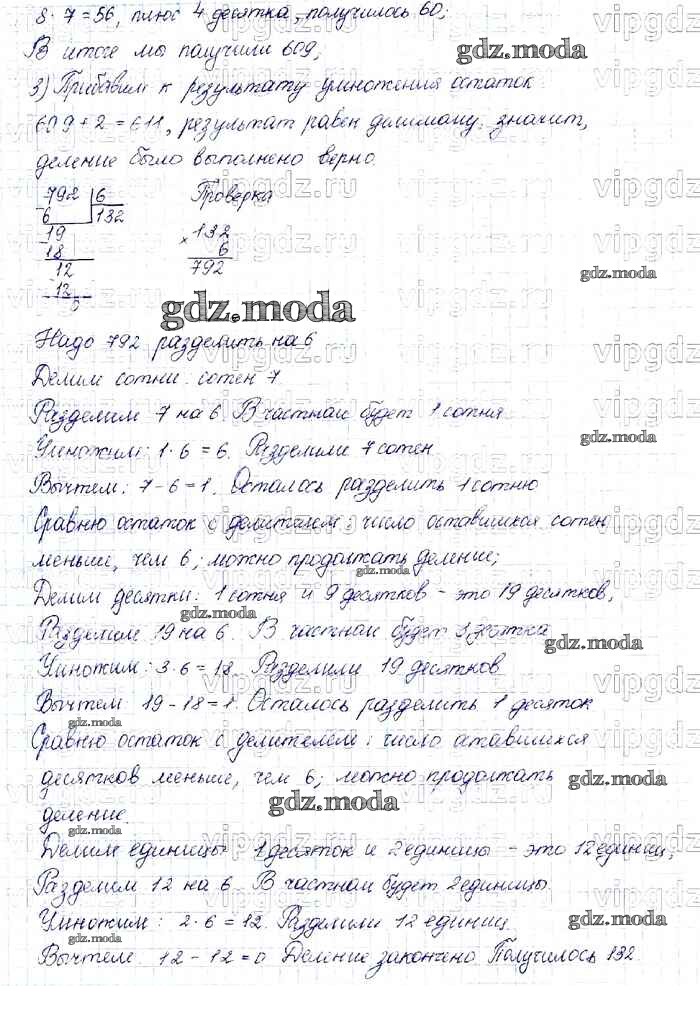 8·7=56, плюс 4 десятка, получилось 60;
В итоге мы получили 609;
gdz.moda
3) Прибавим к результату умножения остаток
609+2=611, результат равен делимому, значит,
деление было выполнено верно.
792 | 6 Проверка
- 6 132
19 × 132
18 6
12 792
- 12
0
gdz.moda
gdz.moda
Надо 792 разделить на 6
Делим сотни: сотен 7.
Разделим 7 на 6. В частном будет 1 сотня
Умножим: 1·6=6. Разделили 7 сотен
gdz.moda
Вычтем: 7-6=1. Осталось разделить 1 сотню
Сравню остаток с делителем: число оставшихся сотен
меньше, чем 6; можно продолжать деление;
gdz.moda
Делим десятки: 1 сотня и 9 десятков - это 19 десятков;
gdz.moda
Разделим 19 на 6. В частном будет 3 десятка
gdz.moda
Умножим: 3·6=18. Разделили 19 десятков.
Вычтем: 19-18=1. Осталось разделить 1 десяток
gdz.moda
Сравню остаток с делителем: число атавшихся
десятков меньше, чем 6; можно продолжать
gdz.moda
gdz.moda
деление.
gdz.moda
Делим единицы: 1 десяток и 2 единицы - это 12 единиц;
Разделим 12 на 6. В частном будет 2 единицы.
Умножим: 2·6=12. Разделили 12 единиц.
gdz.moda
gdz.moda
Вычтем: 12-12=0 Деление закончено. Получилось 132.